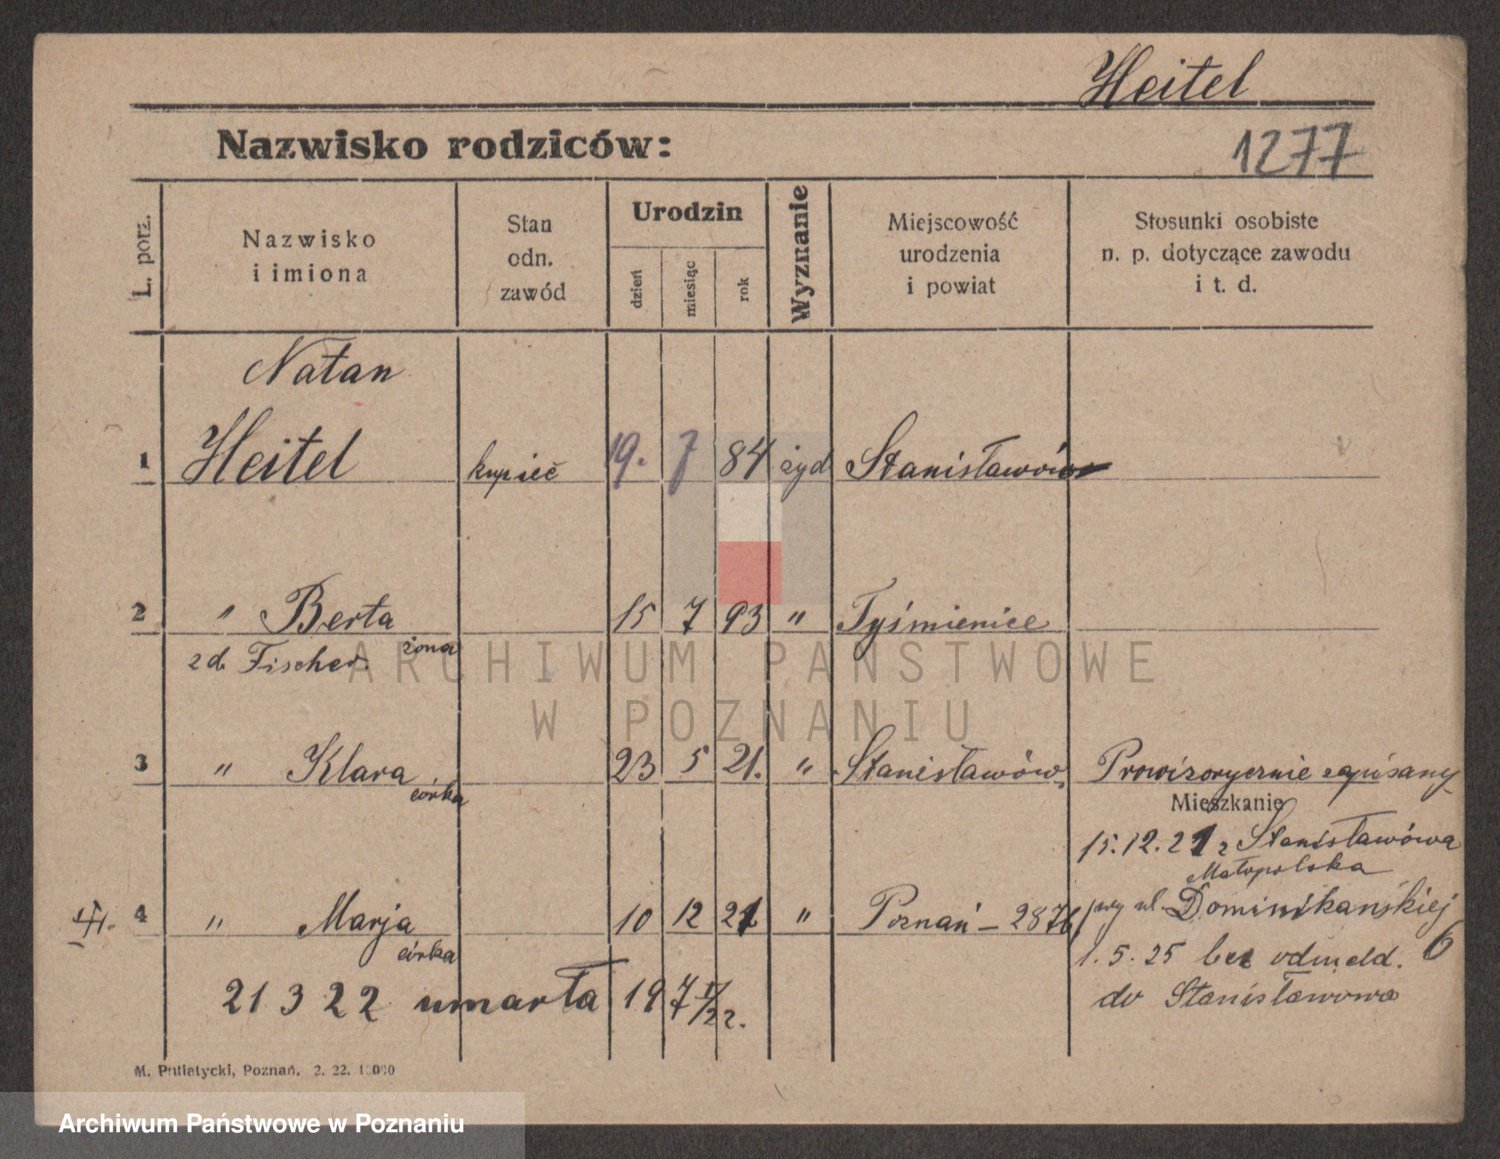 Heitel
Nazwisko rodziców:
1277
L. porz.
Nazwisko
i imiona
Stan
odn.
zawód
Urodzin
dzień
miesiąc
rok
Wyznanie
Miejscowość
urodzenia
i powiat
Stosunki osobiste
n. p. dotyczące zawodu
i t. d.
Natan
1 Heitel kupiec 19. 7 84 żyd Stanisławów
2 " Berta 15 7 93 " Tyśmienice
żona
zd. Fischer.
ARCHIWUM PAŃSTWOWE
W POZNANIU
3 " Klara 23 5 21. " Stanisławów, Prowizorycznie zapisany
córka
Mieszkanie
15.12.21 z Stanisławówa
Małopolska
4 " Marja 10 12 21 " Poznań – 2876 przy ul. Dominikańskiej
6
córka
1.5.25 bez odmeld.
21 3 22 umarła 197 do Stanisławowa
M. Putiatycki, Poznań. 2. 22.
Archiwum Państwowe w Poznaniu